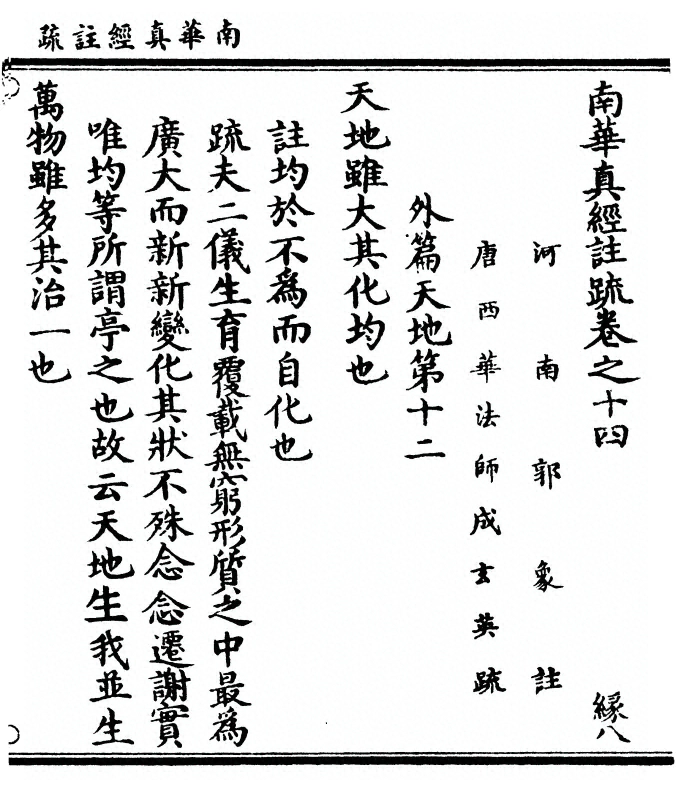 南華真經註疏
南華真經註疏卷之十四
緣八
河南郭象註
唐西華法師成玄英疏
外篇天地第十二
天地雖大其化均也
註均於不為而自化也
疏夫二儀生育覆載無窮形質之中最為
廣大而新新變化其狀不殊念念遷謝實
唯均等所謂亭之也故云天地生我並生
萬物雖多其治一也